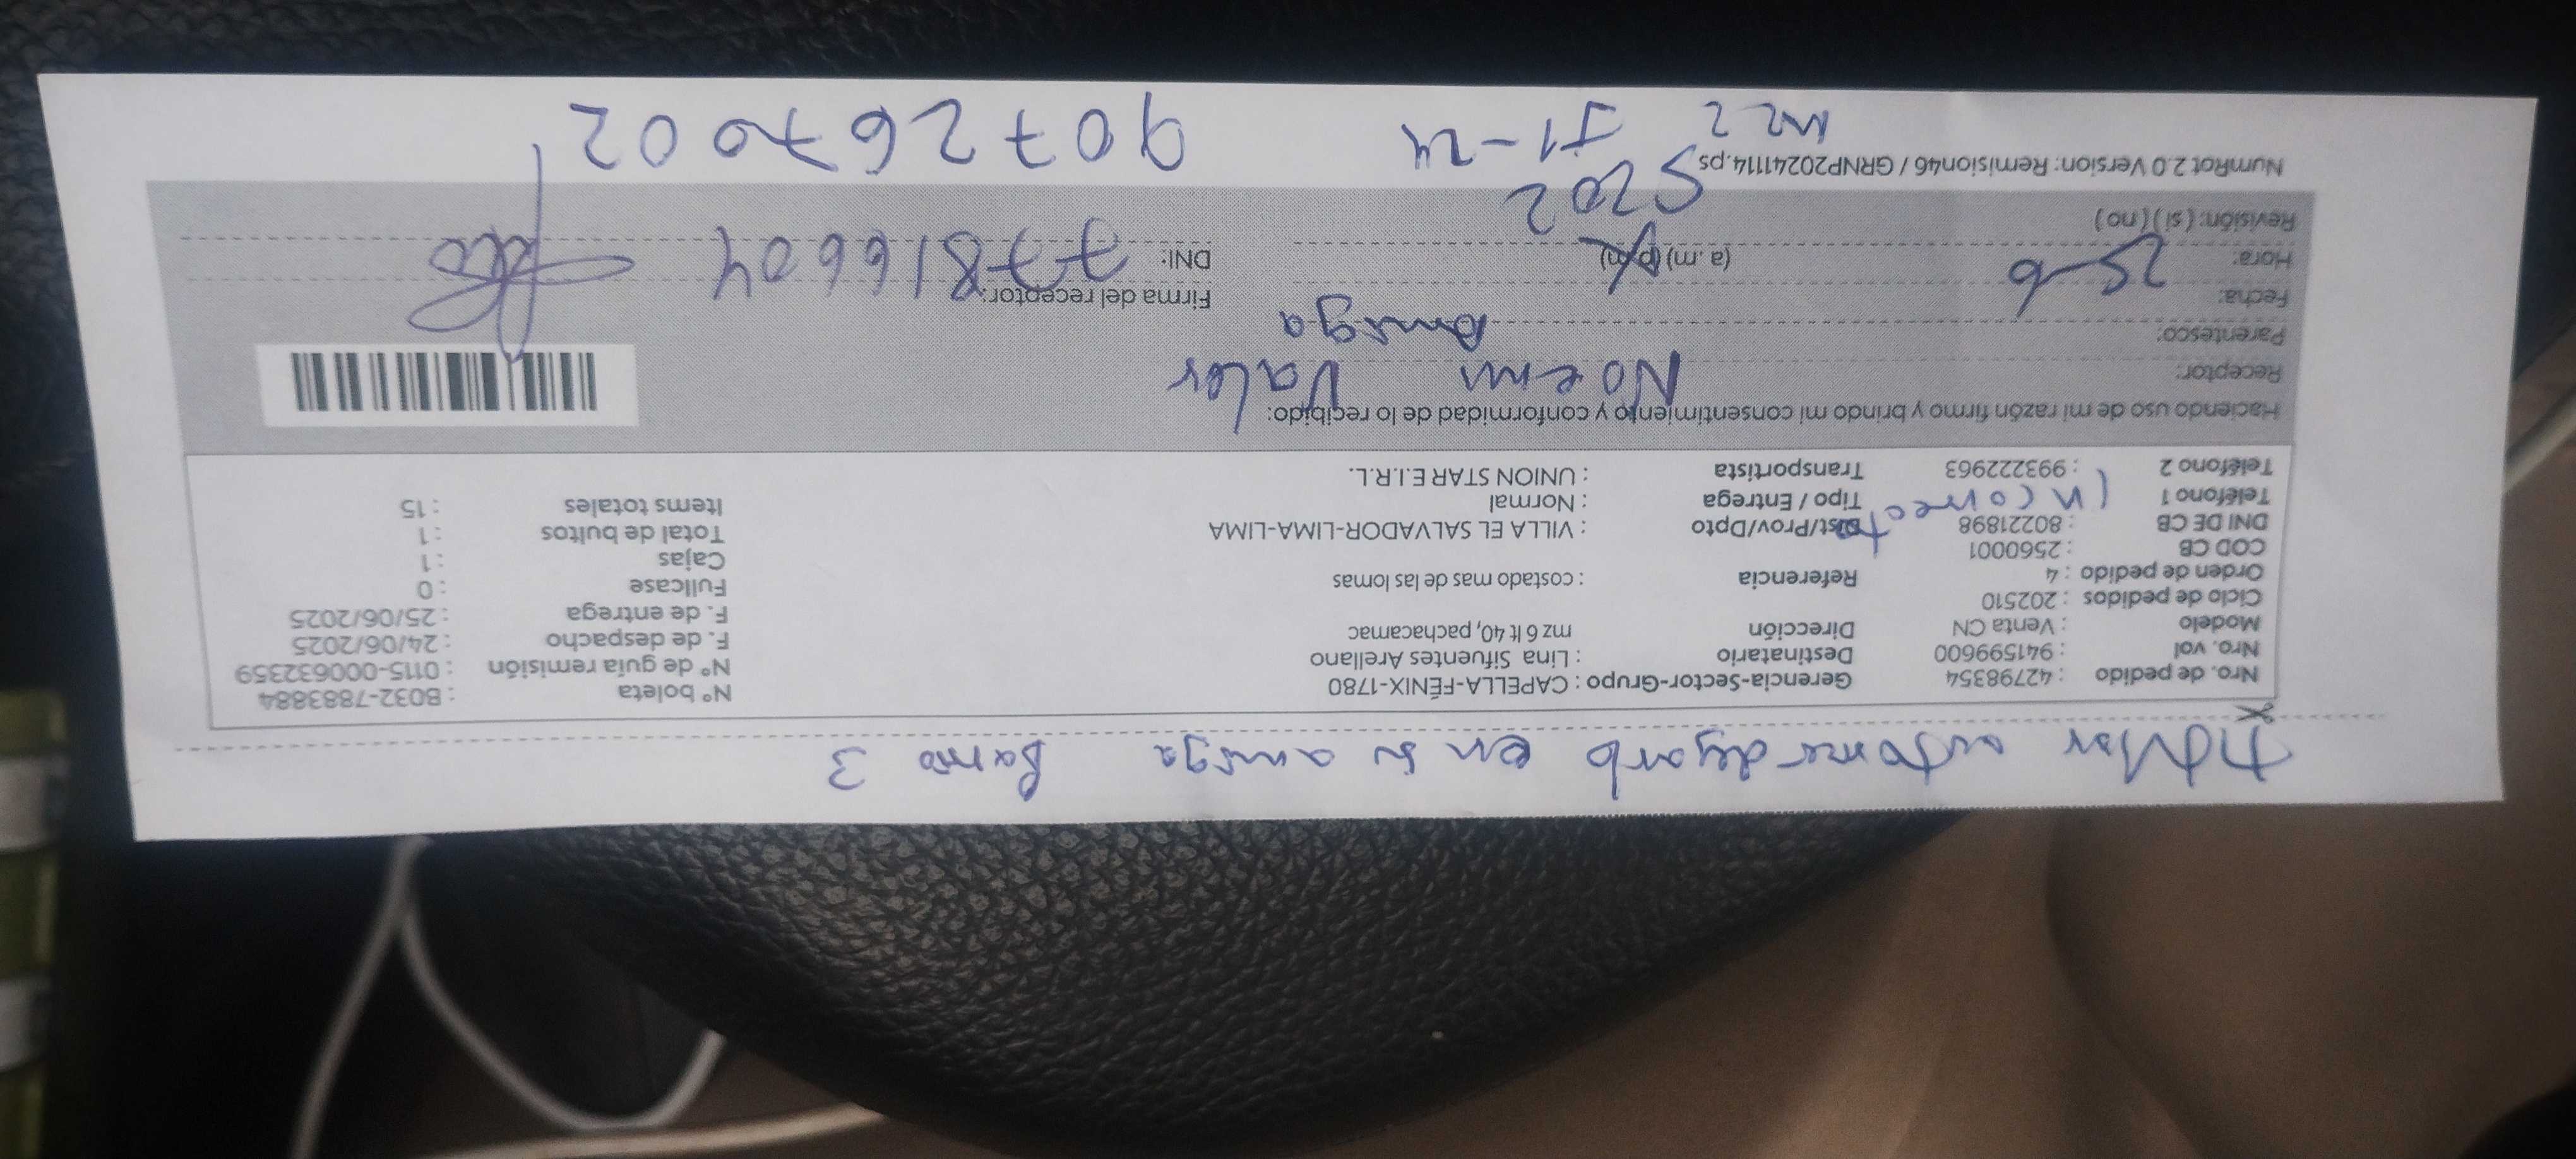 Titular autoriza dejarlo en su amiga Barrio 3
Nro. de pedido : 42798354
Nro. vol : 941599600
Modelo : Venta CN
Ciclo de pedidos : 202510
Orden de pedido : 4
COD CB : 2560001
DNI DE CB : 80221898
Teléfono 1 Incorrecto
Teléfono 2 : 993222963
Gerencia-Sector-Grupo : CAPELLA-FÉNIX-1780
Destinatario : Lina Sifuentes Arellano
Dirección mz 6 lt 40, pachacamac
Referencia : costado mas de las lomas
Dist/Prov/Dpto : VILLA EL SALVADOR-LIMA-LIMA
Tipo / Entrega : Normal
Transportista : UNION STAR E.I.R.L.
N° boleta : B032-7883884
N° de guía remisión : 0115-0000632359
F. de despacho : 24/06/2025
F. de entrega : 25/06/2025
Fullcase : 0
Cajas : 1
Total de bultos : 1
Items totales : 15
Haciendo uso de mi razón firmo y brindo mi consentimiento y conformidad de lo recibido:
Receptor: Noemi Valer
Parentesco: Amiga
Fecha: 25-6
Hora: (a. m) (p. m)
Revisión: ( si ) ( no )
Firma del receptor:
DNI: 77816604
5202
NumRot 2.0 Version: Remision46 / GRNP20241114.ps
Mz 2 Lt-24 907267002